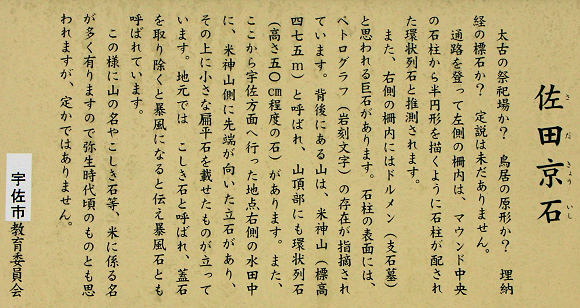 佐田京石
さだきょういし
太古の祭祀場か? 鳥居の原形か? 埋納
経の標石か? 定説は未だありません。
通路を登って左側の柵内は、マウンド中央
の石柱から半円形を描くように石柱が配され
た環状列石と推測されます。
また、右側の柵内にはドルメン(支石墓)
と思われる巨石があります。石柱の表面には、
ペトログラフ(岩刻文字)の存在が指摘され
ています。背後にある山は、米神山(標高
四七五m)と呼ばれ、山頂部にも環状列石
(高さ五〇cm程度の石)があります。また、
ここから宇佐方面へ行った地点右側の水田中
に、米神山側に先端が向いた立石があり、
その上に小さな扁平石を載せたものが立って
います。地元では こしき石と呼ばれ、蓋石
を取り除くと暴風になると伝え暴風石とも
呼ばれています。
この様に山の名やこしき石等、米に係る名
が多く有りますので弥生時代頃のものとも思
われますが、定かではありません。
宇佐市教育委員会